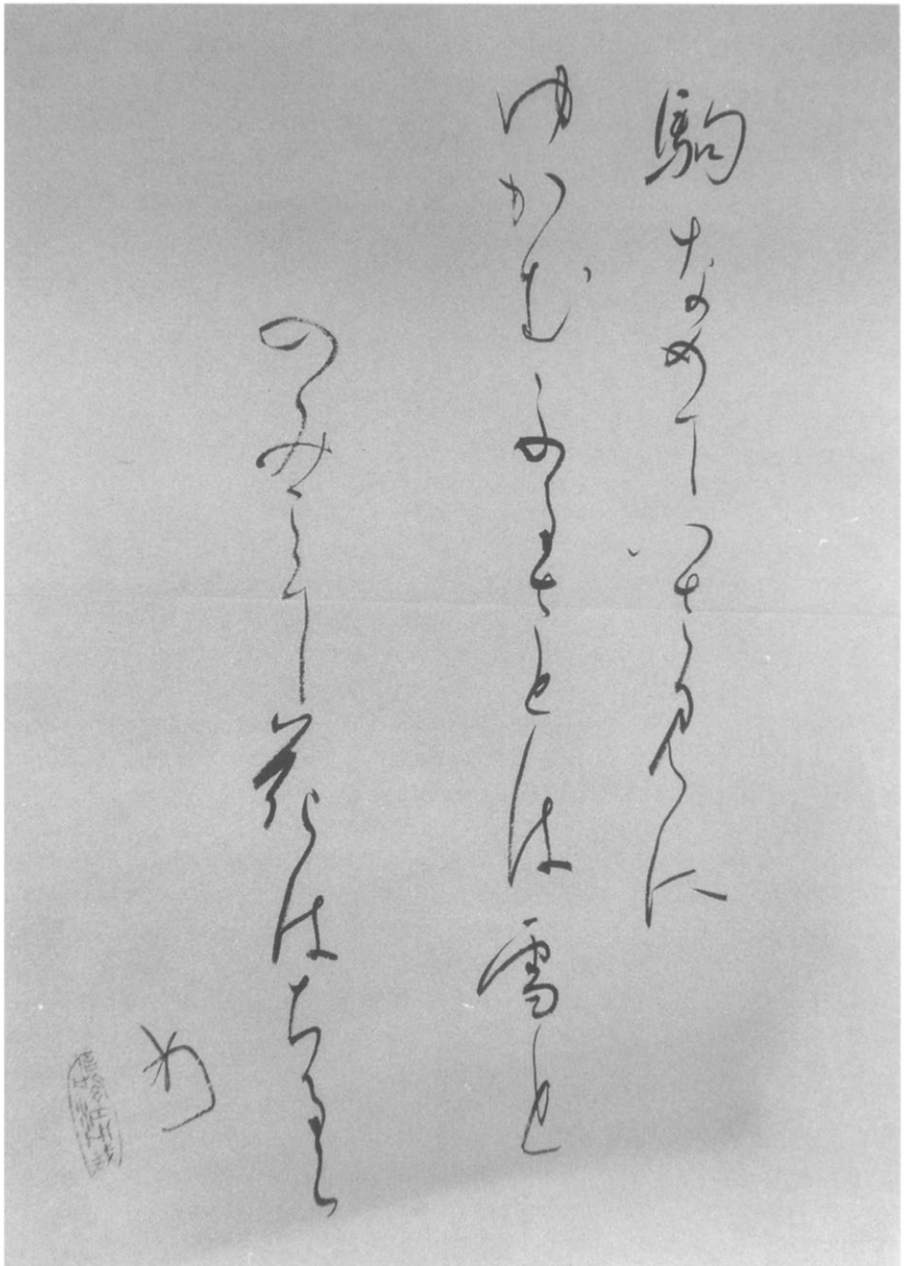 駒なめていさ見に
ゆかむふるさとは雪と
のみこそ花はちるら
め